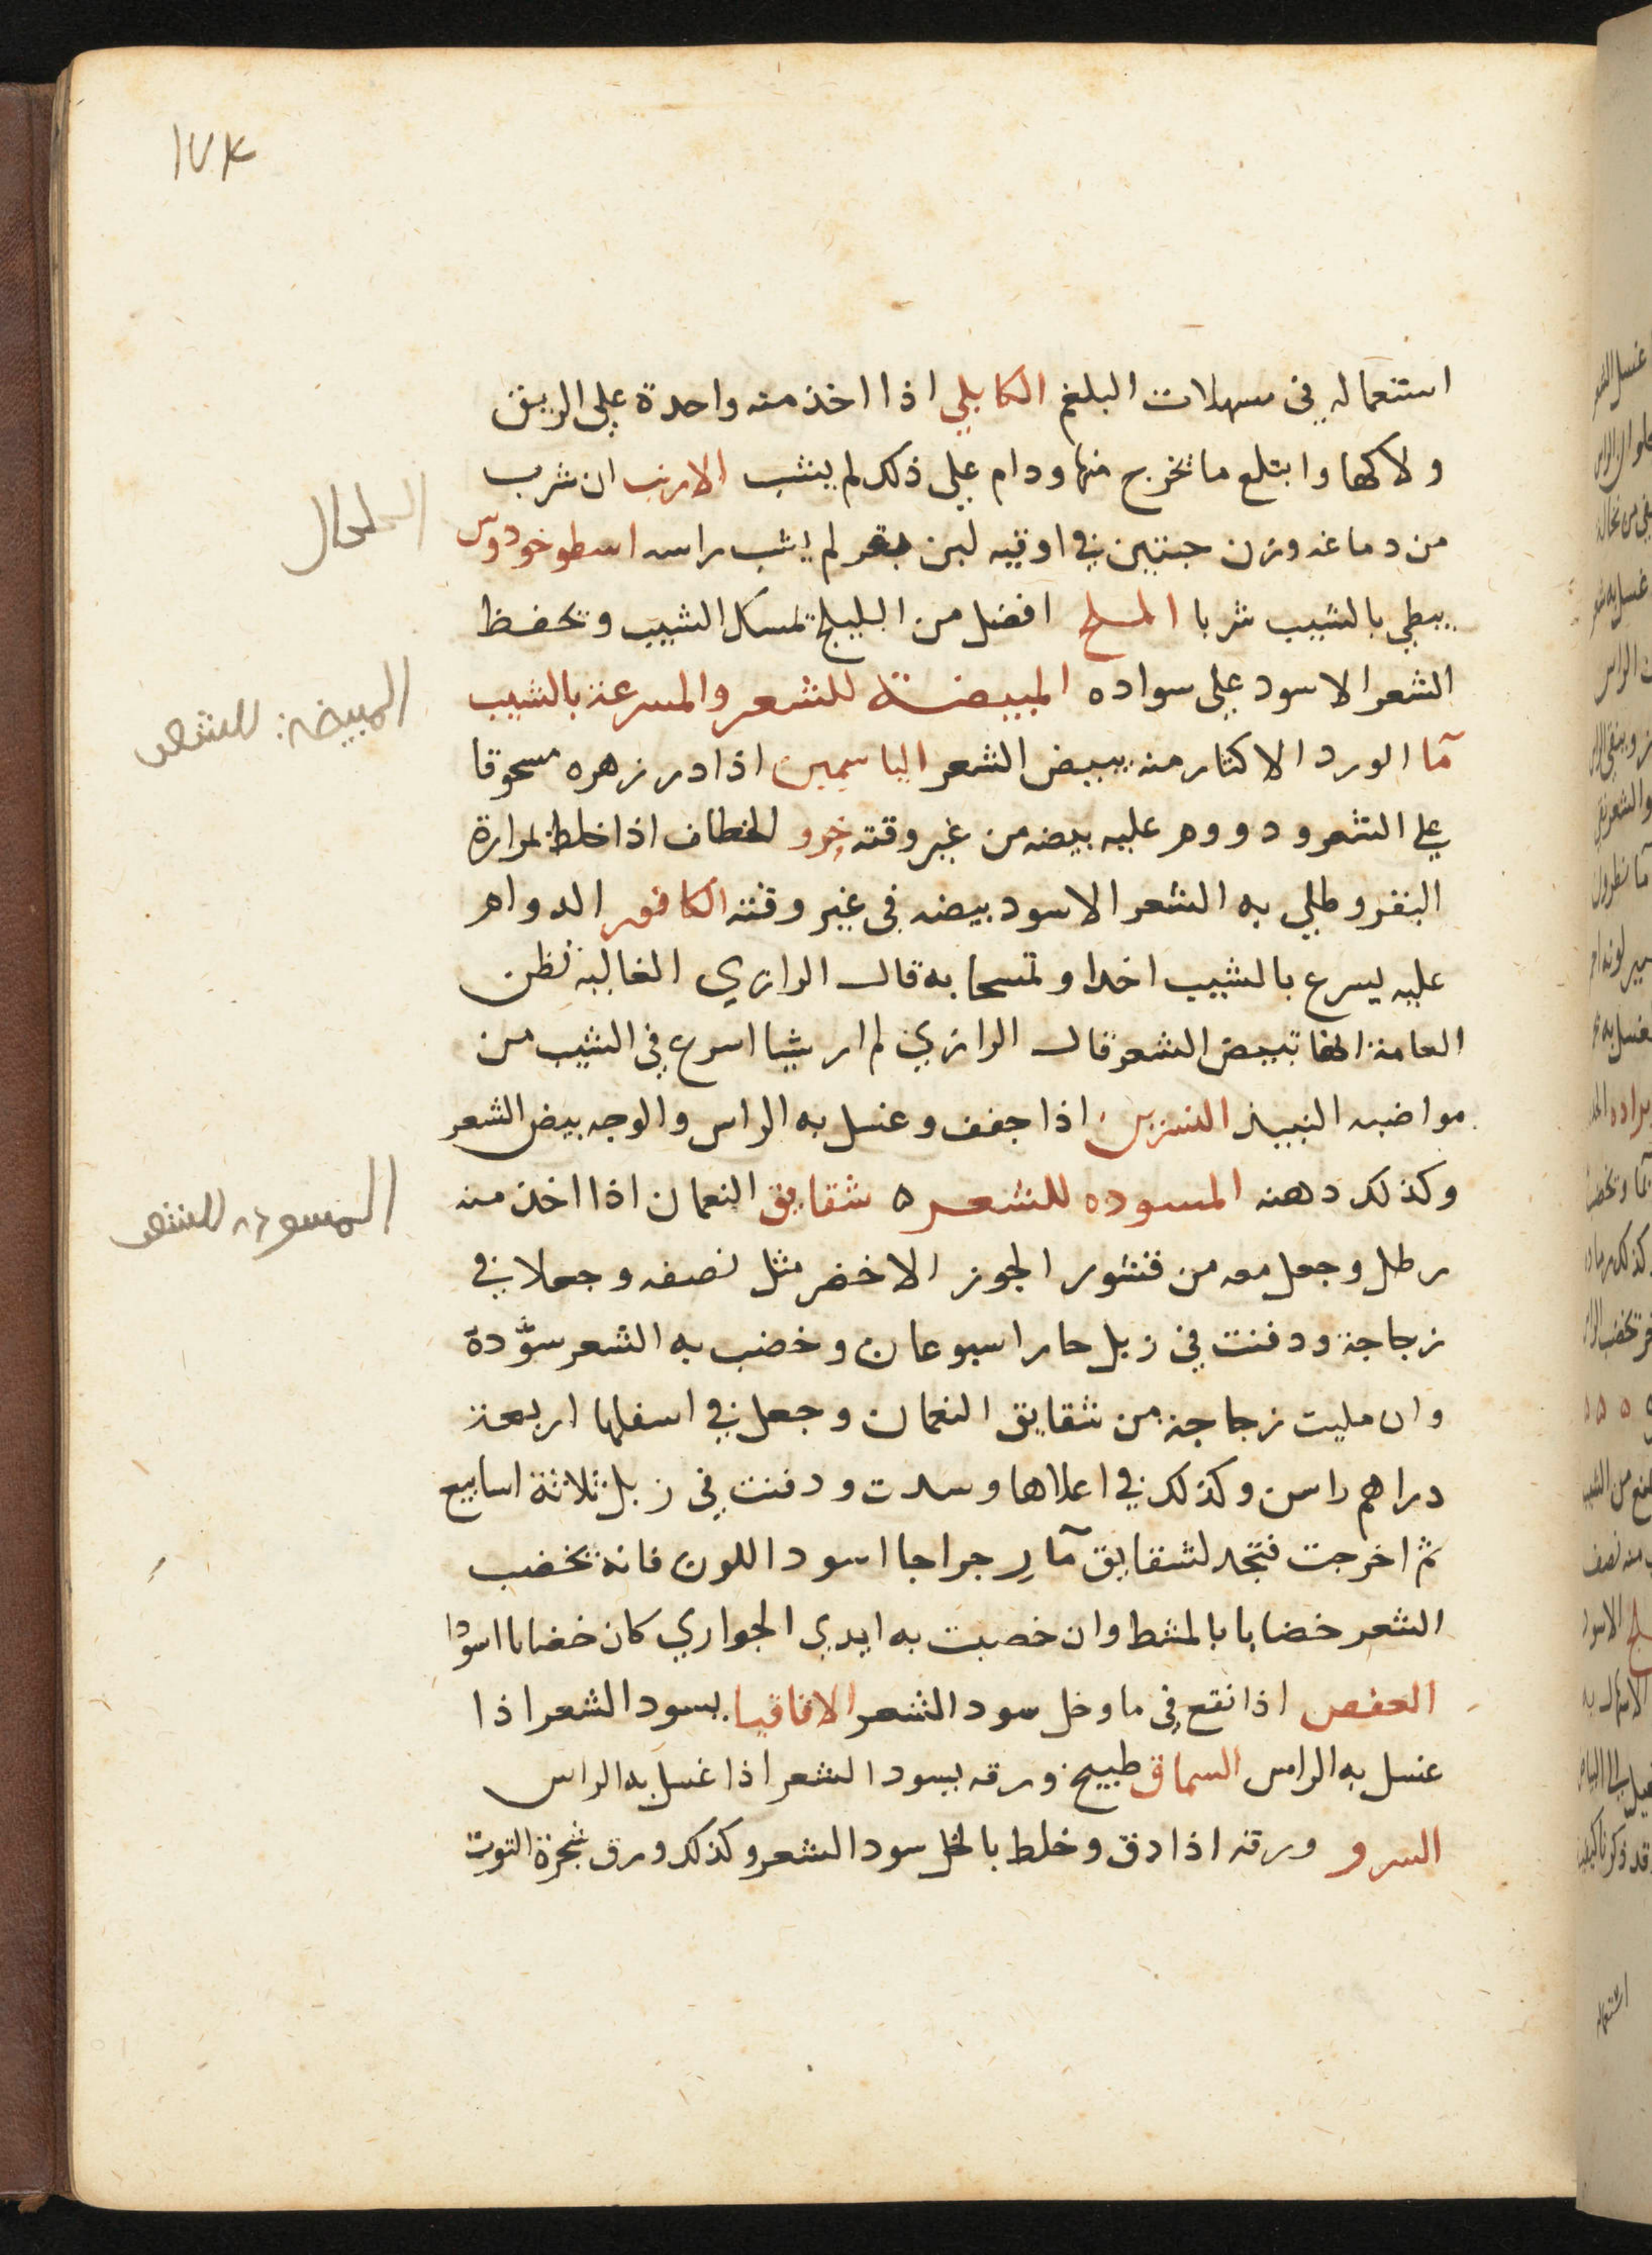 ١٧٤
استعماله في مسهلات البلغم الكابلي اذا اخذ منه واحدة علي الريق
ولاكها وابتلع ما تخرج منها ودام علي ذلك لم يشب الارنب ان شرب
من دماغه وزن حبتين في اوقيه لبن بقر لم يشب راسه اسطوخودوس
يبطي بالشيب شربا افضل من البليلج تمسك الشيب وتحفظ
الشعر الاسود علي سواده المبيضة للشعر والمسرعة بالشيب
المبيضة للشعر
مآ الورد الاكثار منه يبيض الشعر الياسمين اذا در زهره مسحوقا
علي الشعر ودووم عليه بيضه من غير وقته خرو الخطاف اذا خلط بمرارة
البقر وطلي به الشعر الاسود بيضه في غير وقته الكافور الدوام
عليه يسرع بالشيب اخدا وتمسحا به قال الرازي الغالبة تظن
العامة انها تبيض الشعر قال الرازي لم ار شيا اسرع في الشيب من
مواضبه النبيذ النسرين اذا جفف وغسل به الراس والوجه بيض الشعر
وكذلك دهنه المسوده للشعر ٥ شقايق النعمان اذا اخذ منه
المسودة للشعر
رطل وجعل معه من قشور الجوز الاخضر مثل نصفه وجعلا في
زجاجة ودفنت في زبل حار اسبوعان وخضب به الشعر سوّدة
وان مليت زجاجة من شقايق النعمان وجعل في اسفلها اربعة
دراهم راسن وكذلك في اعلاها وسدت ودفنت في زبل ثلاثة اسابيع
ثم اخرجت فتجد لشقايق مآ رجراجا اسود اللون فانه تخضب
الشعر خضابا بالمشط وان خصبت به ايدي الجواري كان خضابا اسودا
العفص اذا نقع في ما وخل سود الشعر الاقاقيا يسود الشعر اذا
غسل به الراس السماق طبيخ ورقه يسود الشعر اذا غسل به الراس
السرو ورقه اذا دق وخلط بالخل سود الشعر وكذلك ورق شجرة التوت